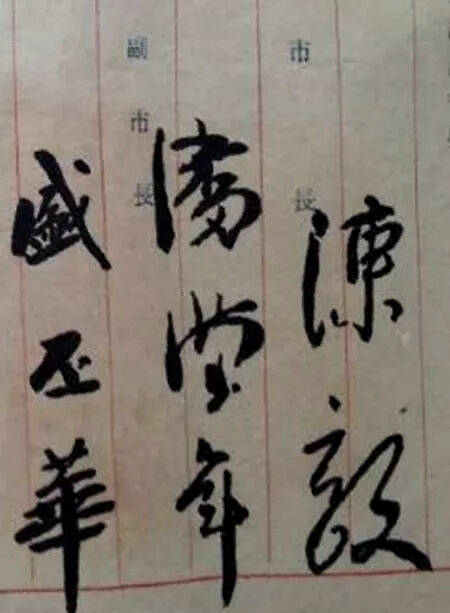 市長
陳毅
副市長
潘漢年
盛丕華